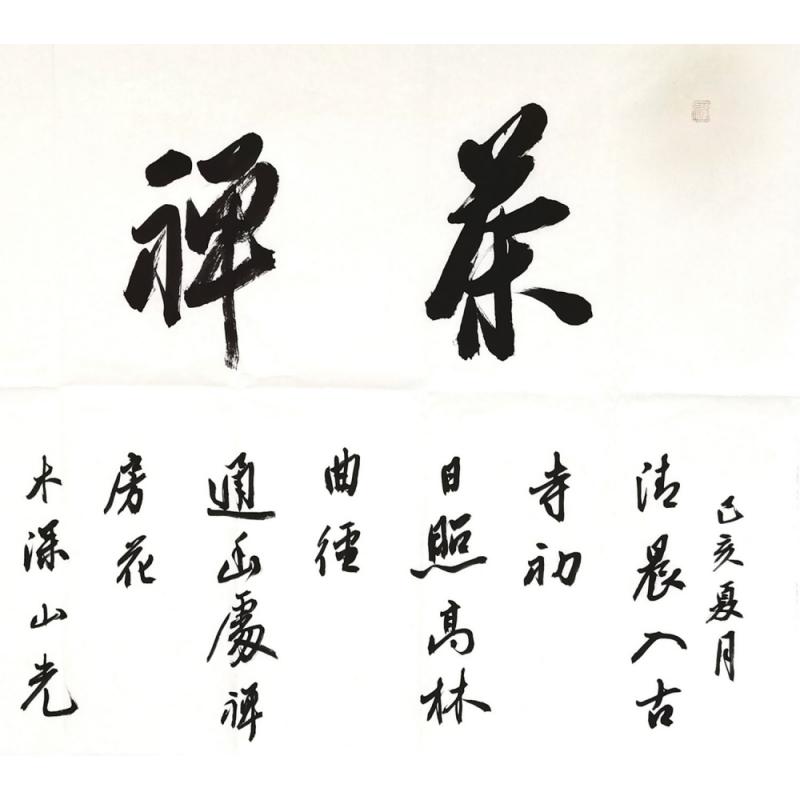 茶禅
己亥夏月
清晨入古
寺初
日照高林
曲徑
通幽處禅
房花
木深山光